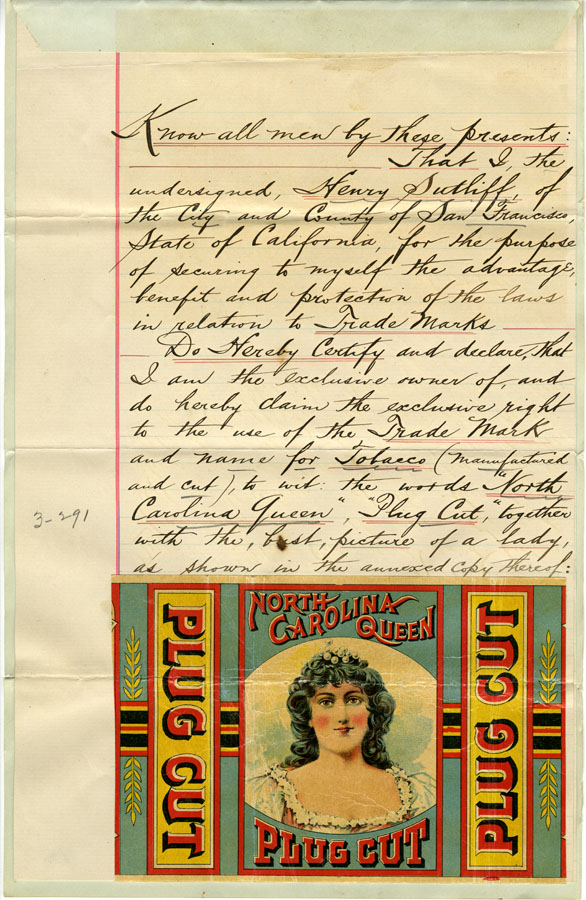 Know all men by these presents:
That I the
undersigned, Henry Sutliff, of
the City and County of San Francisco,
State of California, for the purpose
of securing to myself the advantage,
benefit and protection of the laws
in relation to Trade Marks
Do Hereby Certify and declare, that
I am the exclusive owner of, and
do hereby claim the exclusive right
to the use of the Trade Mark
and name for Tobacco (manufactured
and cut), to wit: the words "North
Carolina Queen", "Plug Cut," together
with the, bust, picture of a lady,
as shown in the annexed copy thereof:
3-291
NORTH
CAROLINA
QUEEN
PLUG CUT
PLUG CUT
PLUG CUT